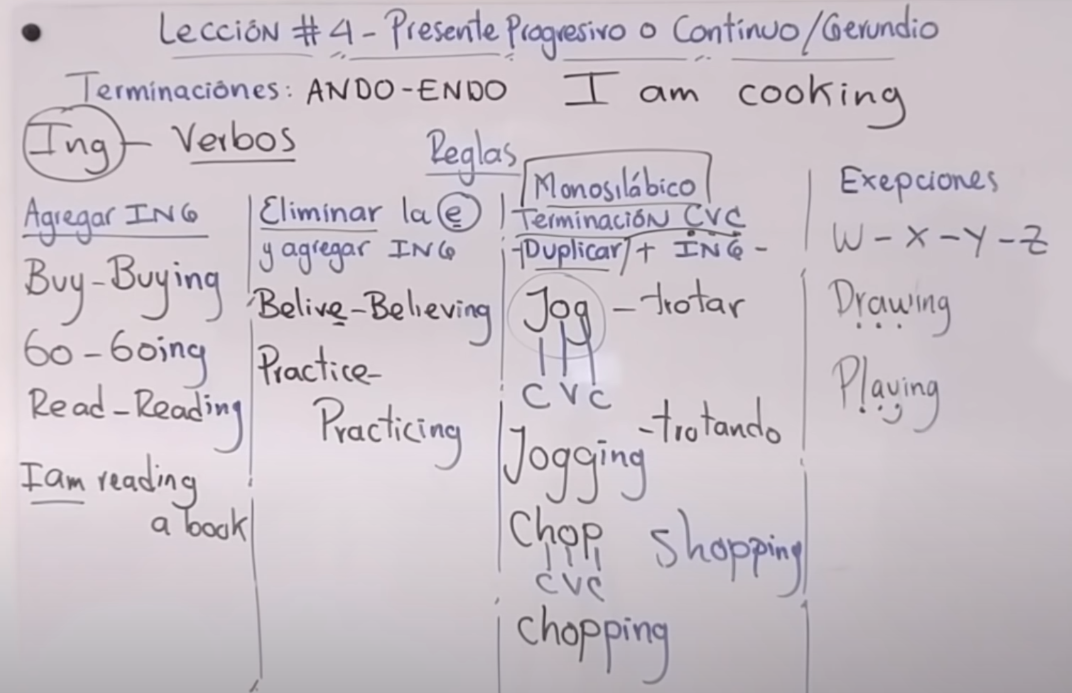 Lección # 4 - Presente Progresivo o Continuo/Gerundio
Terminaciones: ANDO-ENDO I am cooking
Ing - Verbos
Reglas
Agregar ING
Buy-Buying
Go-Going
Read-Reading
I am reading
a book
Eliminar la e
y agregar ING
Belive-Believing
Practice-
Practicing
Monosilábico
Terminación CVC
-Duplicar + ING -
Jog - trotar
C V C
-trotando
Jogging
Chop shopping
CVC
chopping
Exepciones
W-X-Y-Z
Drawing
Playing